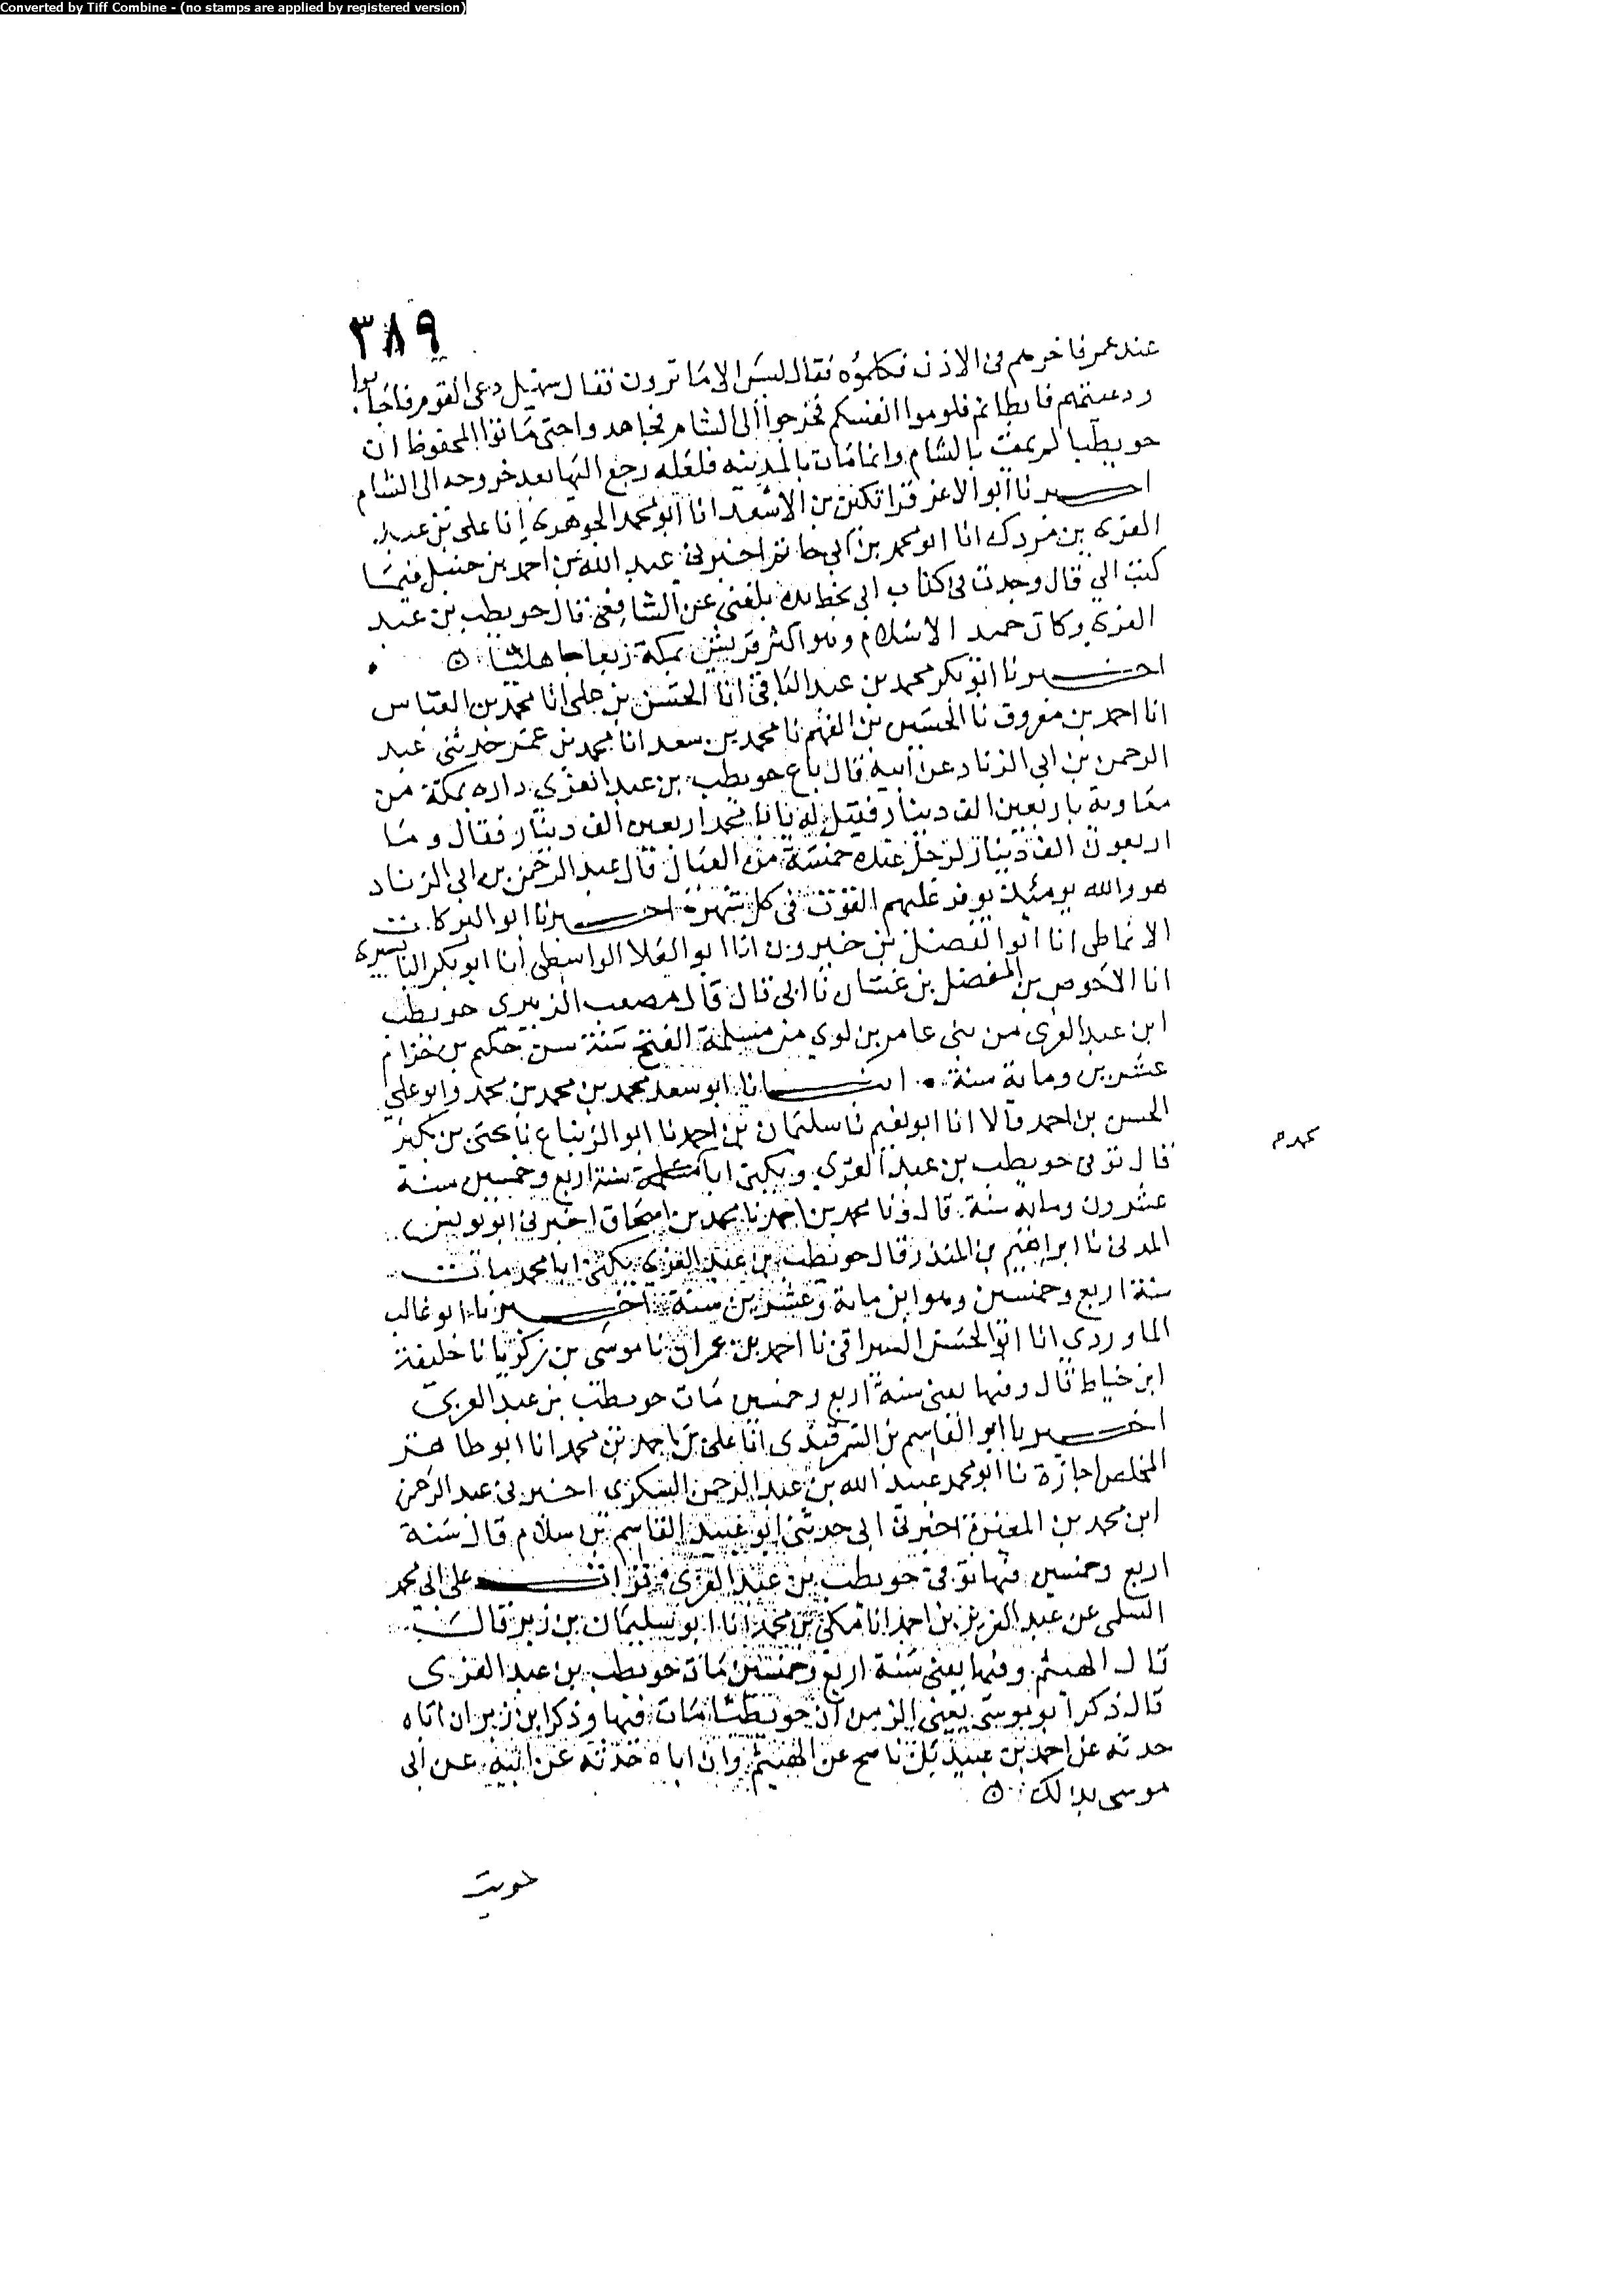 Converted by Tiff Combine - (no stamps are applied by registered version)
٣٨٩
عند عمر فاخرهم في الاذن فكلموه فقال ليس الا ما ترون فقال سهيل دعي القوم فاجابوا
ودعيتم فابطاتم فلوموا انفسكم فخرجوا الى الشام فجاهدوا حتى ماتوا المحفوظ ان
حويطبا لم يمت بالشام وانما مات بالمدينه فلعله رجع اليها بعد خروجه الى الشام
اخبرنا ابو الاعز قراتكين بن الاسعد انا ابو محمد الجوهري انا علي بن عبد
العزى بن مردك انا ابو محمد بن ابي حاتم اخبرني عبد الله بن احمد بن حنبل فيما
كتب الي قال وجدت في كتاب ابي بخط يده بلغني عن الشافعي قال حويطب بن عبد
العزى وكان حميد الاسلام وهو اكثر قريش بمكة ربعا جاهليا
اخبرنا ابو بكر محمد بن عبد الباقي انا الحسن بن علي انا محمد بن العباس
انا احمد بن معروف نا الحسين بن الفهم نا محمد بن سعد انا محمد بن عمر حدثني عبد
الرحمن بن ابي الزناد عن ابيه قال باع حويطب بن عبد العزى داره بمكة من
معاوية باربعين الف دينار فقيل له يا ابا محمد اربعين الف دينار فقال وما
اربعون الف دينار لرجل عنده خمسة من العيال قال عبد الرحمن بن ابي الزناد
هو والله يومئذ يوفر عليهم القوت في كل شهر اخبرنا ابو البركات
الانماطي انا ابو الفضل بن خيرون انا ابو العلا الواسطي انا ابو بكر البابسيري
انا الاحوص بن المفضل بن غسان نا ابي قال قال مصعب الزبيري حويطب
ابن عبد العزى من بني عامر بن لوي من مسلمة الفتح سنه سن حكيم بن حزام
عشرين وماية سنة انبانا ابو سعد محمد بن محمد بن محمد وابو علي
الحسن بن احمد قالا انا ابو نعيم نا سليمان بن احمد نا ابو الزنباع نا يحيى بن بكير
قال توفي حويطب بن عبد العزى ويكنى ابا سنة اربع وخمسين سنة
محمد م
عشرون ومايه سنة قال ونا محمد بن احمد نا محمد بن اسحاق اخبرني ابو يونس
المدني نا ابراهيم بن المنذر قال حويطب بن عبد العزى يكنى ابا محمد مات
سنة اربع وخمسين وهو ابن ماية وعشرين سنة اخبرنا ابو غالب
الماوردي انا ابو الحسن السيرافي نا احمد بن عمران نا موسى بن زكريا نا خليفة
ابن خياط قال وفيها يعني سنة اربع وخمسين مات حويطب بن عبد العزى
اخبرنا ابو القاسم بن السمرقندي انا علي بن احمد بن محمد انا ابو طاهر
المخلص اجازة نا ابو محمد عبيد الله بن عبد الرحمن السكري اخبرني عبد الرحمن
ابن محمد بن المغيرة اخبرني ابي حدثني ابو عبيد القاسم بن سلام قال سنة
اربع وخمسين فيها توفي حويطب بن عبد العزى قرات على ابي محمد
السلمي عن عبد العزيز بن احمد انا مكي بن محمد انا ابو سليمان بن زبر قال
قال الهيثم وفيها يعني سنة اربع وخمسين مات حويطب بن عبد العزى
قال ذكر ابو موسى يعني الزمن ان حويطبا مات فيها وذكر ابن زبر ان اباه
حدثه عن احمد بن عبيد بن ناصح عن الهيثم وان اباه حدثه عن ابيه عن ابي
موسى بذلك
حويت